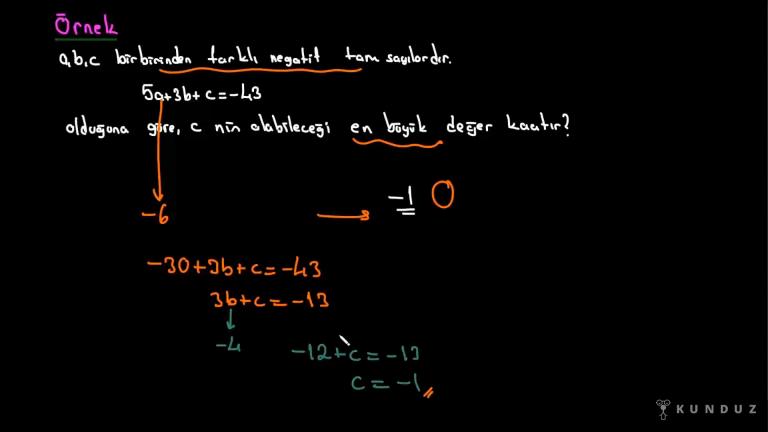 Örnek
a,b,c birbirinden farklı negatif tam sayılardır.
5a+3b+c=-43
olduğuna göre, c nin alabileceği en büyük değer kaçtır?
-1 0
-6
-30+3b+c=-43
3b+c=-13
-4 -12+c=-13
c=-1
KUNDUZ